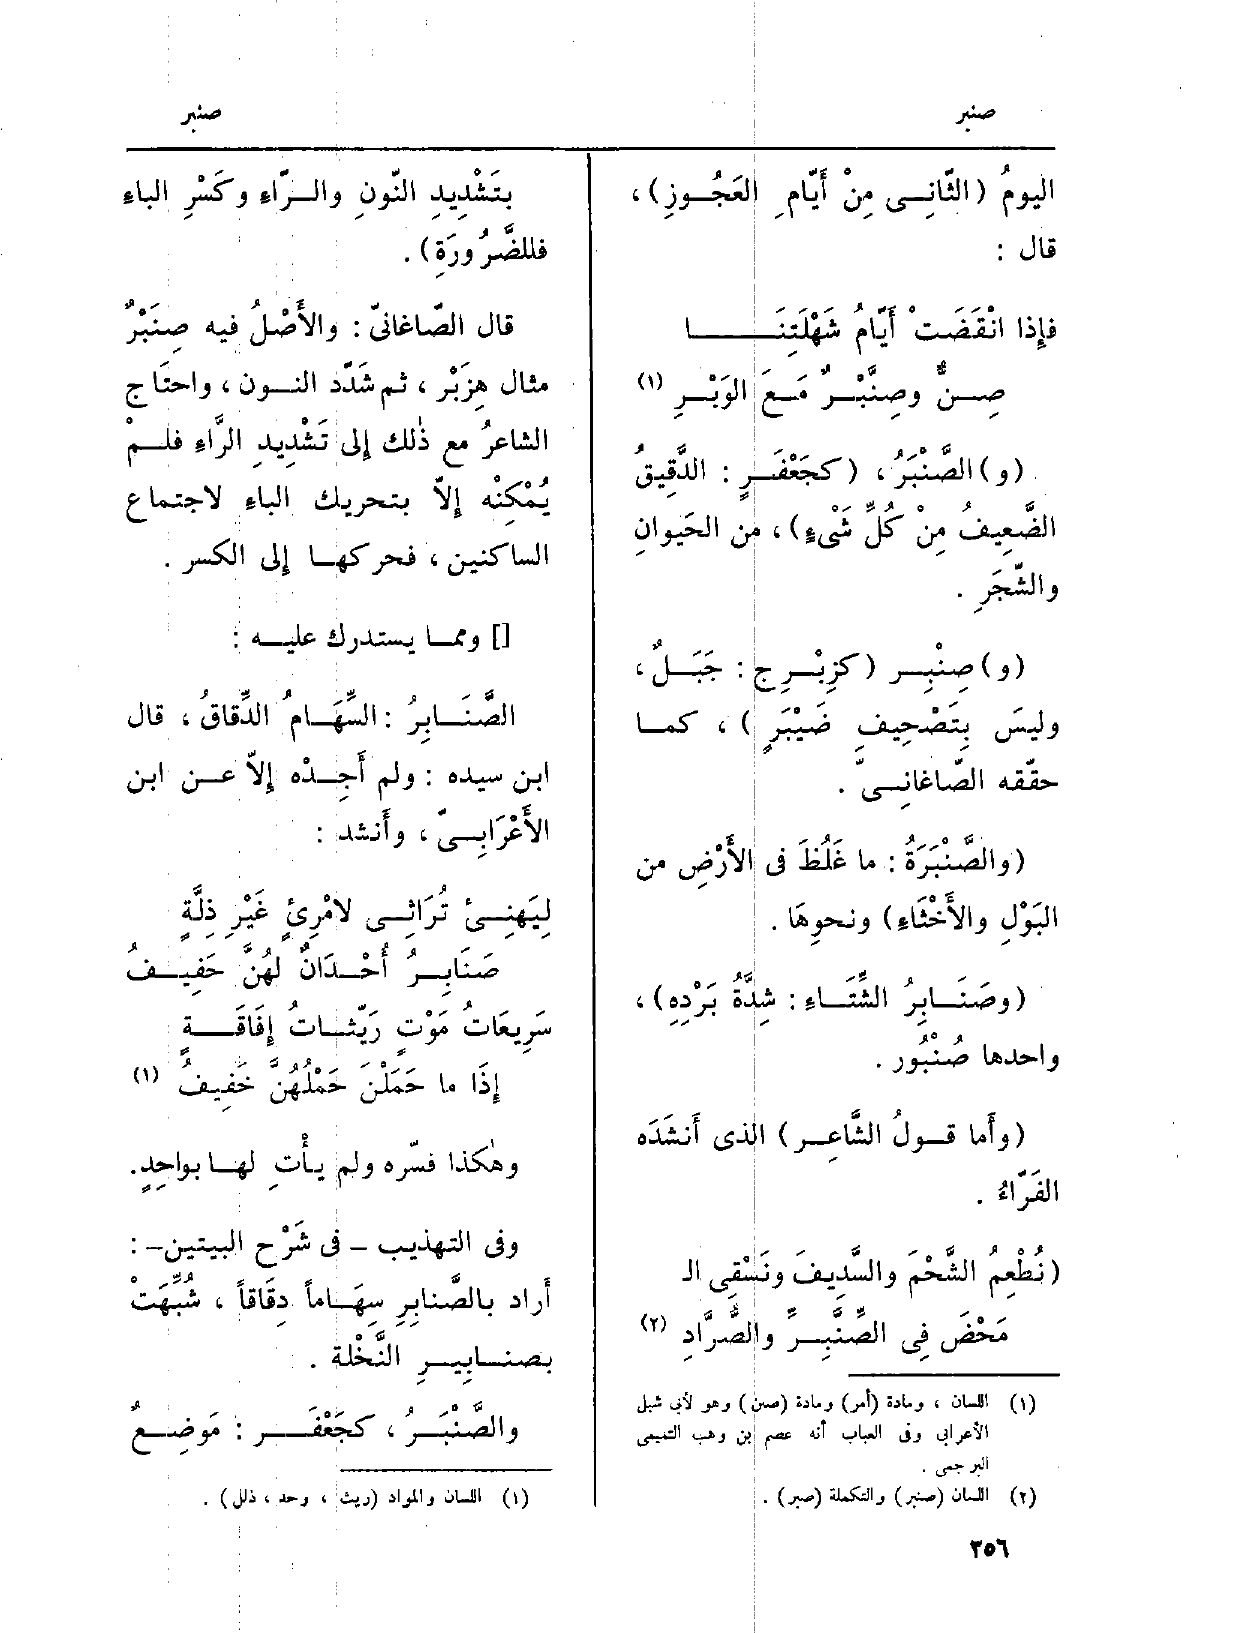 صنبر
صنبر
اليومُ (الثَّانِى مِنْ أَيَّامِ العَجُوزِ)،
قال :
فإِذا انْقَضَتْ أَيَّامُ شَهْلَتِنَا
صِنٌّ وصِنَّبْرٌ مَعَ الوَبْرِ (١)
(و)الصَّنْبَرُ، (كجَعْفَرٍ : الدَّقِيقُ
الضَّعِيفُ مِنْ كُلِّ شَىْءٍ)، مِن الحَيوانِ
والشَّجَرِ .
(و)صِنْبِر (كزِبْرِجٍ : جَبَلٌ،
وليسَ بتَصْحِيفِ ضَيْبَرٍ) ، كما
حقّقه الصّاغانِىّ .
(والصَّنْبَرَةُ : ما غَلُظَ فى الأَرْضِ من
البَوْلِ والأَخْثَاءِ) ونحوِهَا .
(وصَنَابِرُ الشِّتَاءِ : شِدَّةُ بَرْدِه)،
واحدها صُنْبُور .
(وأَما قولُ الشَّاعِر) الذى أَنشَدَه
الفَرّاءُ .
(نُطْعِمُ الشَّحْمَ والسَّدِيفَ ونَسْقِى الـ
مَحْضَ فِى الصِّنَّبِرِّ والصُّرَّادِ (٢)
(١) اللسان ، ومادة (أمر) ومادة (صنن) وهو لأبى شبل
الأعرابى وفى العباب أنه عصم بن وهب التميمى
البرجمى .
(٢) اللسان (صنبر) والتكملة (صبر) .
بتَشْدِيدِ النّونِ والرّاءِ وكَسْرِ الباءِ
فللضَّرُورَةِ) .
قال الصّاغانىّ : والأَصْلُ فيه صِنَبْرٌ
مثال هِزَبْر ، ثم شَدَّد النون ، واحتَاج
الشاعرُ مع ذٰلك إِلى تَشْدِيدِ الرَّاءِ فلمْ
يُمْكِنْه إِلاّ بتحريك الباءِ لاجتماع
الساكنين ، فحركها إِلى الكسر .
[] ومما يستدرك عليه :
الصَّنَابِرُ : السِّهَامُ الدِّقاقُ ، قال
ابن سيده : ولم أَجِدْه إِلاّ عن ابن
الأَعْرَابِىّ ، وأَنشد :
لِيَهنِئْ تُرَاثِى لامْرِئٍ غَيْرِ ذِلَّةٍ
صَنَابِرُ أُحْدَانٌ لهُنَّ حَفِيفُ
سَرِيعَاتُ مَوْتٍ رَيِّثاتُ إِفَاقَةٍ
إِذَا ما حَمَلْنَ حَمْلُهُنَّ خَفِيفُ (١)
وهٰكذا فسّره ولم يأْتِ لها بواحِدٍ.
وفى التهذيب – فى شَرْح البيتين– :
أَراد بالصَّنابِرِ سِهَاماً دِقَاقاً ، شُبِّهَتْ
بصنابِيرِ النَّخْلة .
والصَّنْبَرُ ، كجَعْفَر : مَوْضِعٌ
(١) اللسان والمواد (ريث ، وحد ، ذلل) .
٣٥٦